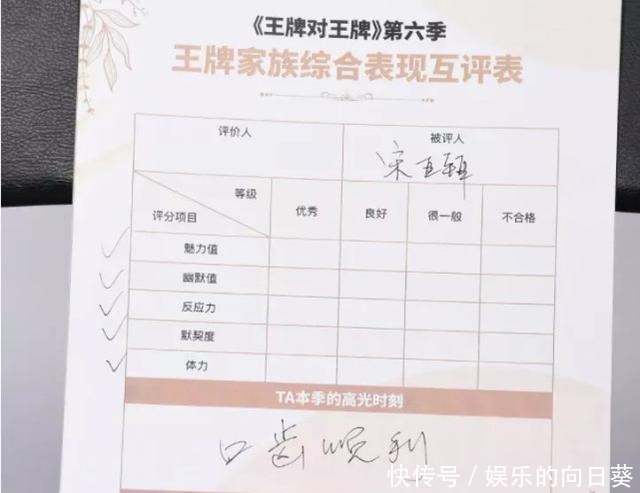 《王牌对王牌》第六季
王牌家族综合表现互评表
评价人 被评人
宋亚轩
等级 评分项目 优秀 良好 很一般 不合格
魅力值
幽默值
反应力
默契度
体力
TA本季的高光时刻
口齿顺利
快传号 / 娱乐的向日葵